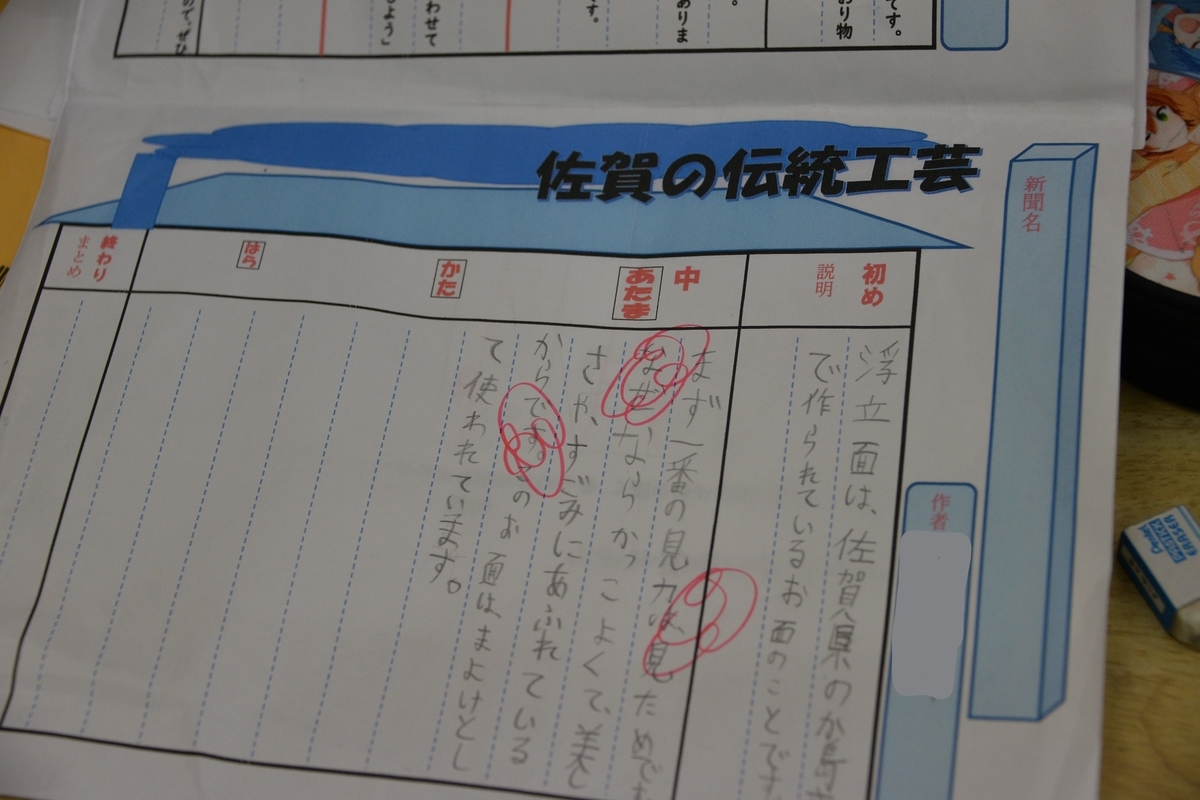 です。
おり物
ありま
。
です。
わせて
しよう」
ので、ぜひ
佐賀の伝統工芸
新聞名
作者
初め
説明
浮立面は、佐賀県のか島市
で作られているお面のことです
中
あたま
かた
はら
まず一番の見力は、見ためです
なぜならかっこよくて、美し
さや、すごみにあふれている
からです。このお面は、まよけとし
て使われています。
終わり
まとめ
Pentel
ERASER